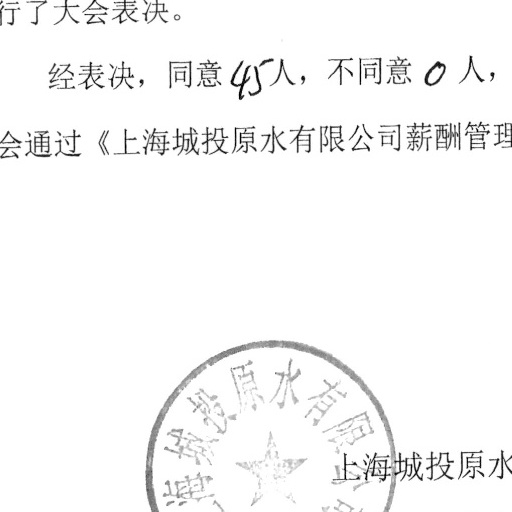 行了大会表决。
经表决，同意45人，不同意0人，
会通过《上海城投原水有限公司薪酬管理
海城投原水有限公司
上海城投原水